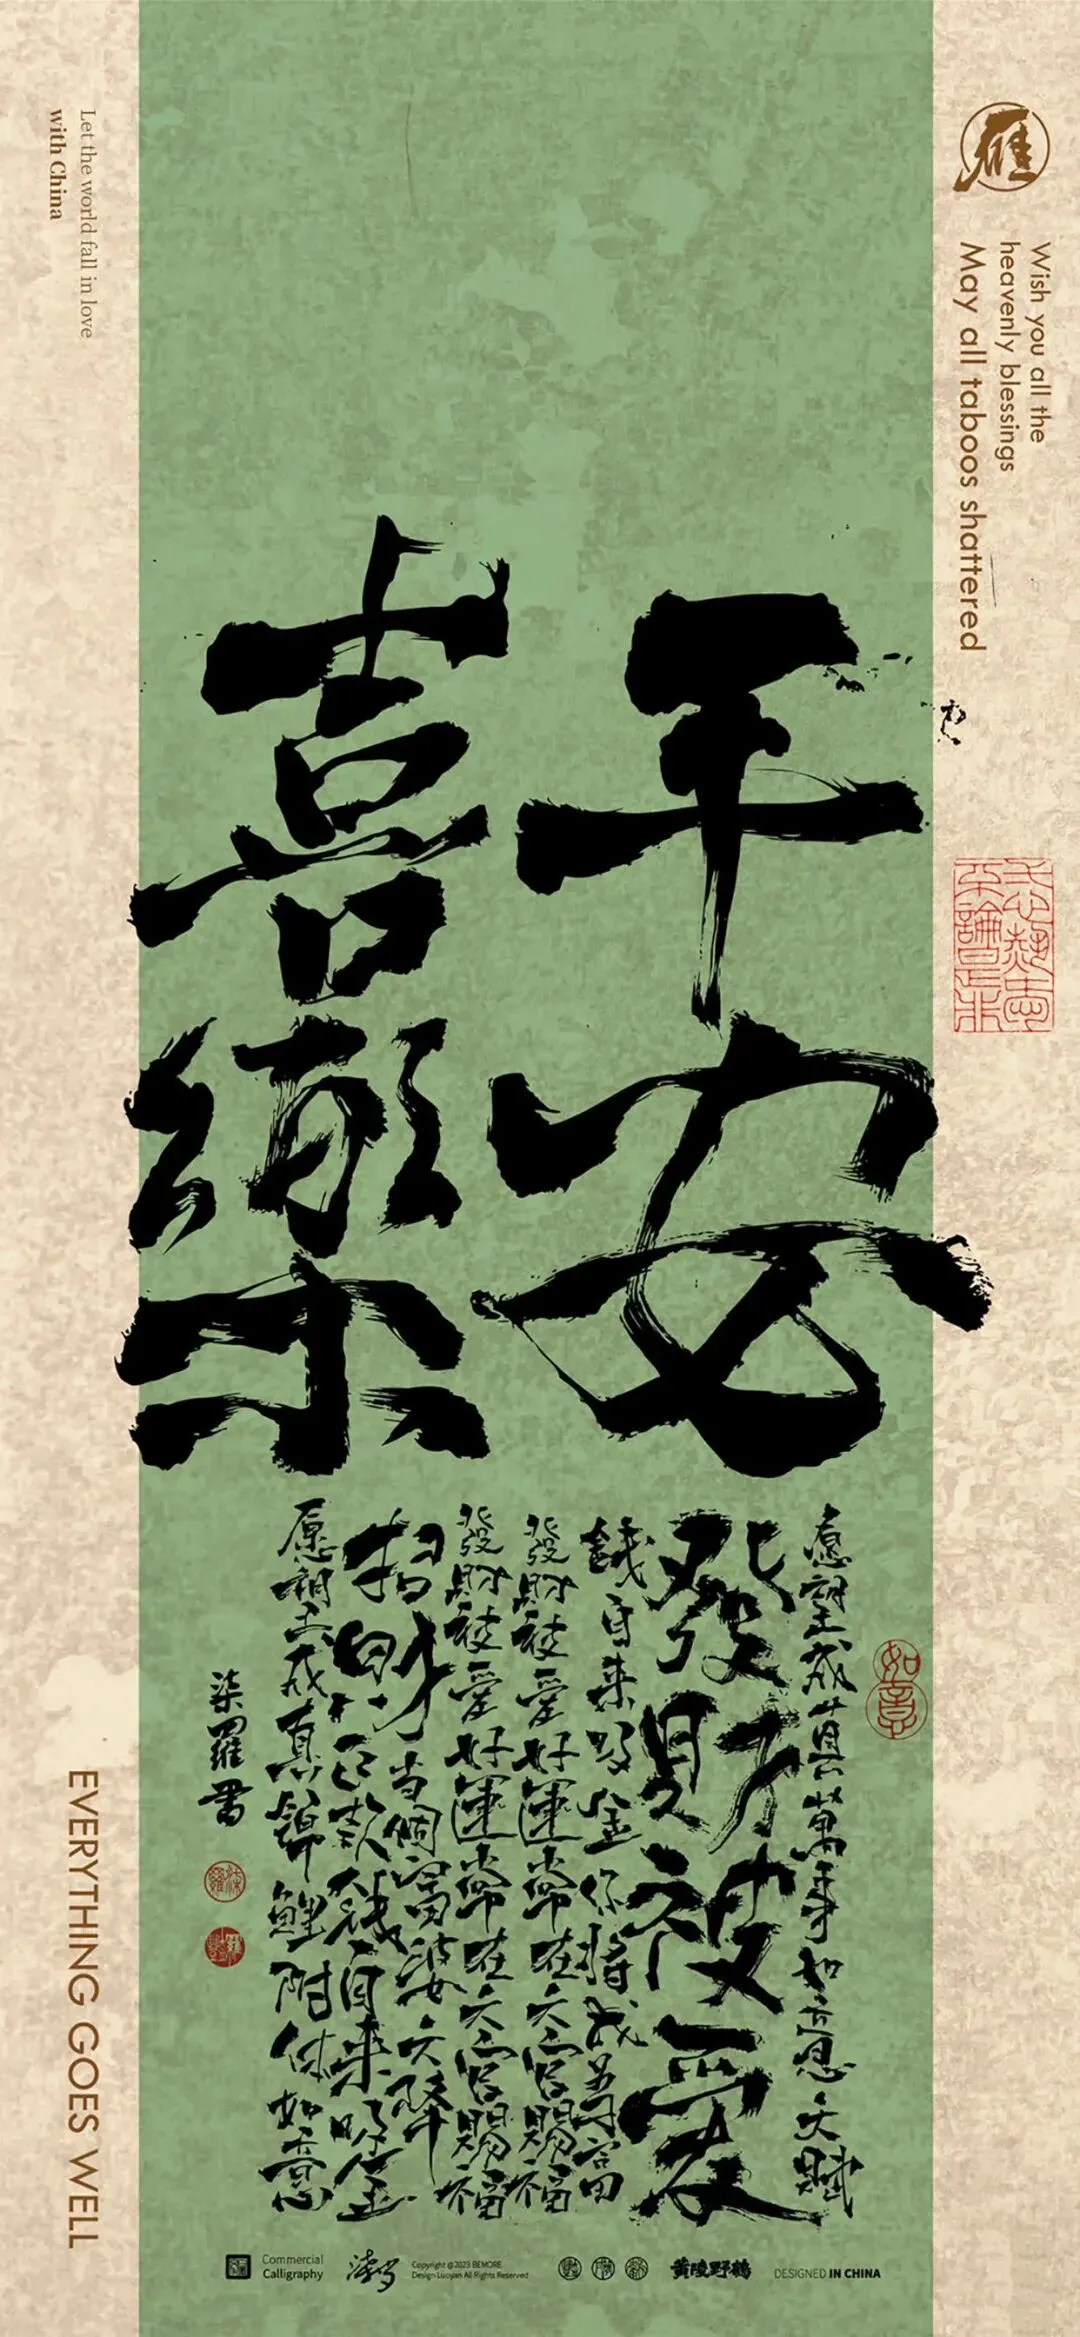 雁
Wish you all the
heavenly blessings
May all taboos shattered
Let the world fall in love
with China
平安
喜樂
如意
愿望成真萬事如意天賦
發財被愛
錢自来吸金你将成暴富
發財被愛好運常在天官賜福
發財被愛好運常在天官賜福
招財
当個富婆天降
自来吸金
愿望成真錦鯉附体如意
柒羅書
EVERYTHING GOES WELL
Commercial
Calligraphy
Copyright @2023 BEMORE
Design Luoyan All Rights Reserved
黄陵野鹤
DESIGNED IN CHINA